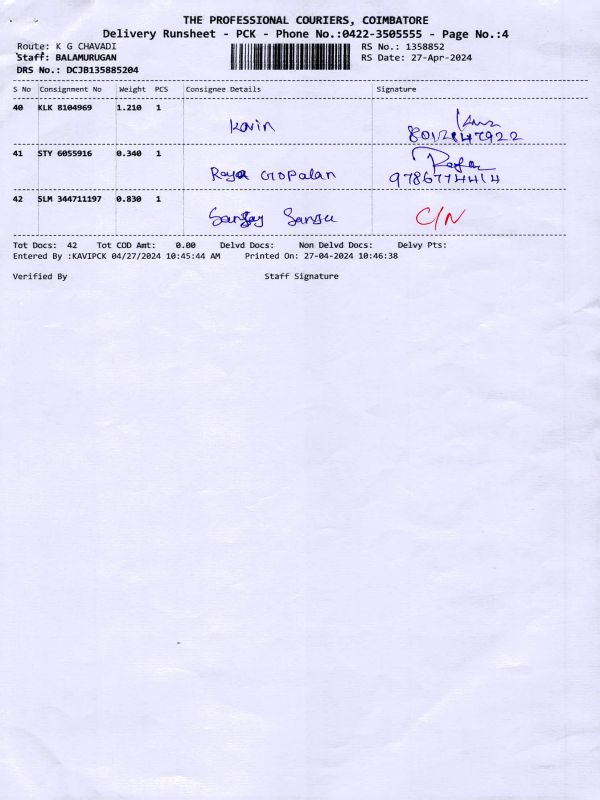 THE PROFESSIONAL COURIERS, COIMBATORE
Delivery Runsheet - PCK - Phone No.:0422-3505555 - Page No.:4
Route: K G CHAVADI RS No.: 1358852
Staff: BALAMURUGAN RS Date: 27-Apr-2024
DRS No.: DCJB135885204
S No Consignment No Weight PCS Consignee Details Signature
40 KLK 8104969 1.210 1
Kavin
41 STY 6055916 0.340 1
Raja Gopalan 9786774414
42 SLM 344711197 0.830 1
Sanjay C/N
Tot Docs: 42 Tot COD Amt: 0.00 Delvd Docs: Non Delvd Docs: Delvy Pts:
Entered By :KAVIPCK 04/27/2024 10:45:44 AM Printed On: 27-04-2024 10:46:38
Verified By Staff Signature